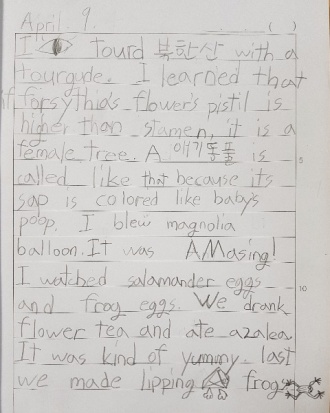 April 9.
I tourd 북한산 with a
tourgude. I learned that
if forsythia's flower's pistil is
higher than stamen, it is a
female tree. A 애기똥풀 is
called like that because its
sap is colored like baby's
poop. I blew magnolia
balloon. It was AMasing!
I watched salamander eggs
and frog eggs. We drank
flower tea and ate azalea.
It was kind of yummy. last
we made lipping frogs